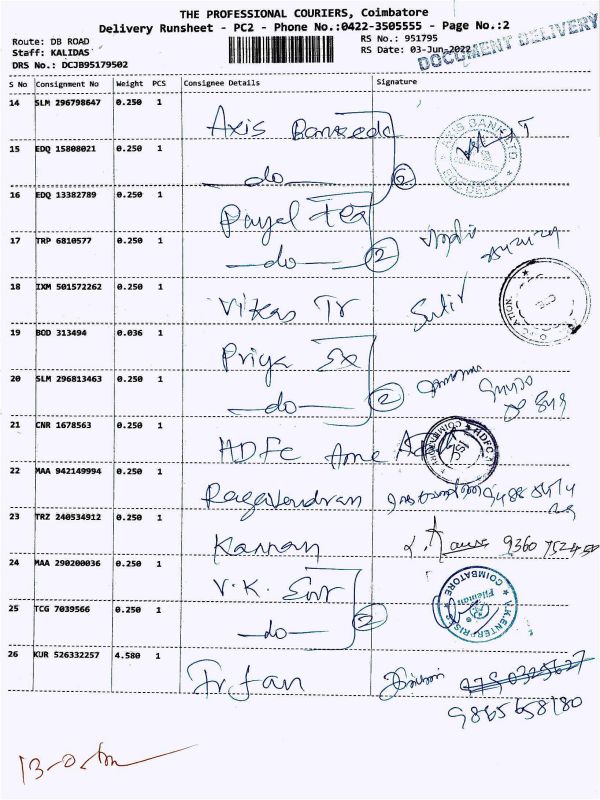 THE PROFESSIONAL COURIERS, Coimbatore
Delivery Runsheet - PC2 - Phone No.:0422-3505555 - Page No.:2
Route: DB ROAD
Staff: KALIDAS
DRS No.: DCJB95179502
RS No.: 951795
RS Date: 03-Jun-2022
DOCUMENT DELIVERY
S No Consignment No Weight PCS Consignee Details Signature
14 SLM 296798647 0.250 1 Axis
15 EDQ 15808021 0.250 1 -do-
16 EDQ 13382789 0.250 1 Payal Tex
17 TRP 6810577 0.250 1 -do- 2
18 IXM 501572262 0.250 1 Vikas Tr
19 BOD 313494 0.036 1 Priya Ex
20 SLM 296813463 0.250 1 -do- 2
21 CNR 1678563 0.250 1 HDFC
22 MAA 942149994 0.250 1 Ragavendran
23 TRZ 240534912 0.250 1 Kannan
24 MAA 290200036 0.250 1 V.K.
25 TCG 7039566 0.250 1 -do- 2
26 KUR 526332257 4.580 1 Irfan
9865658180